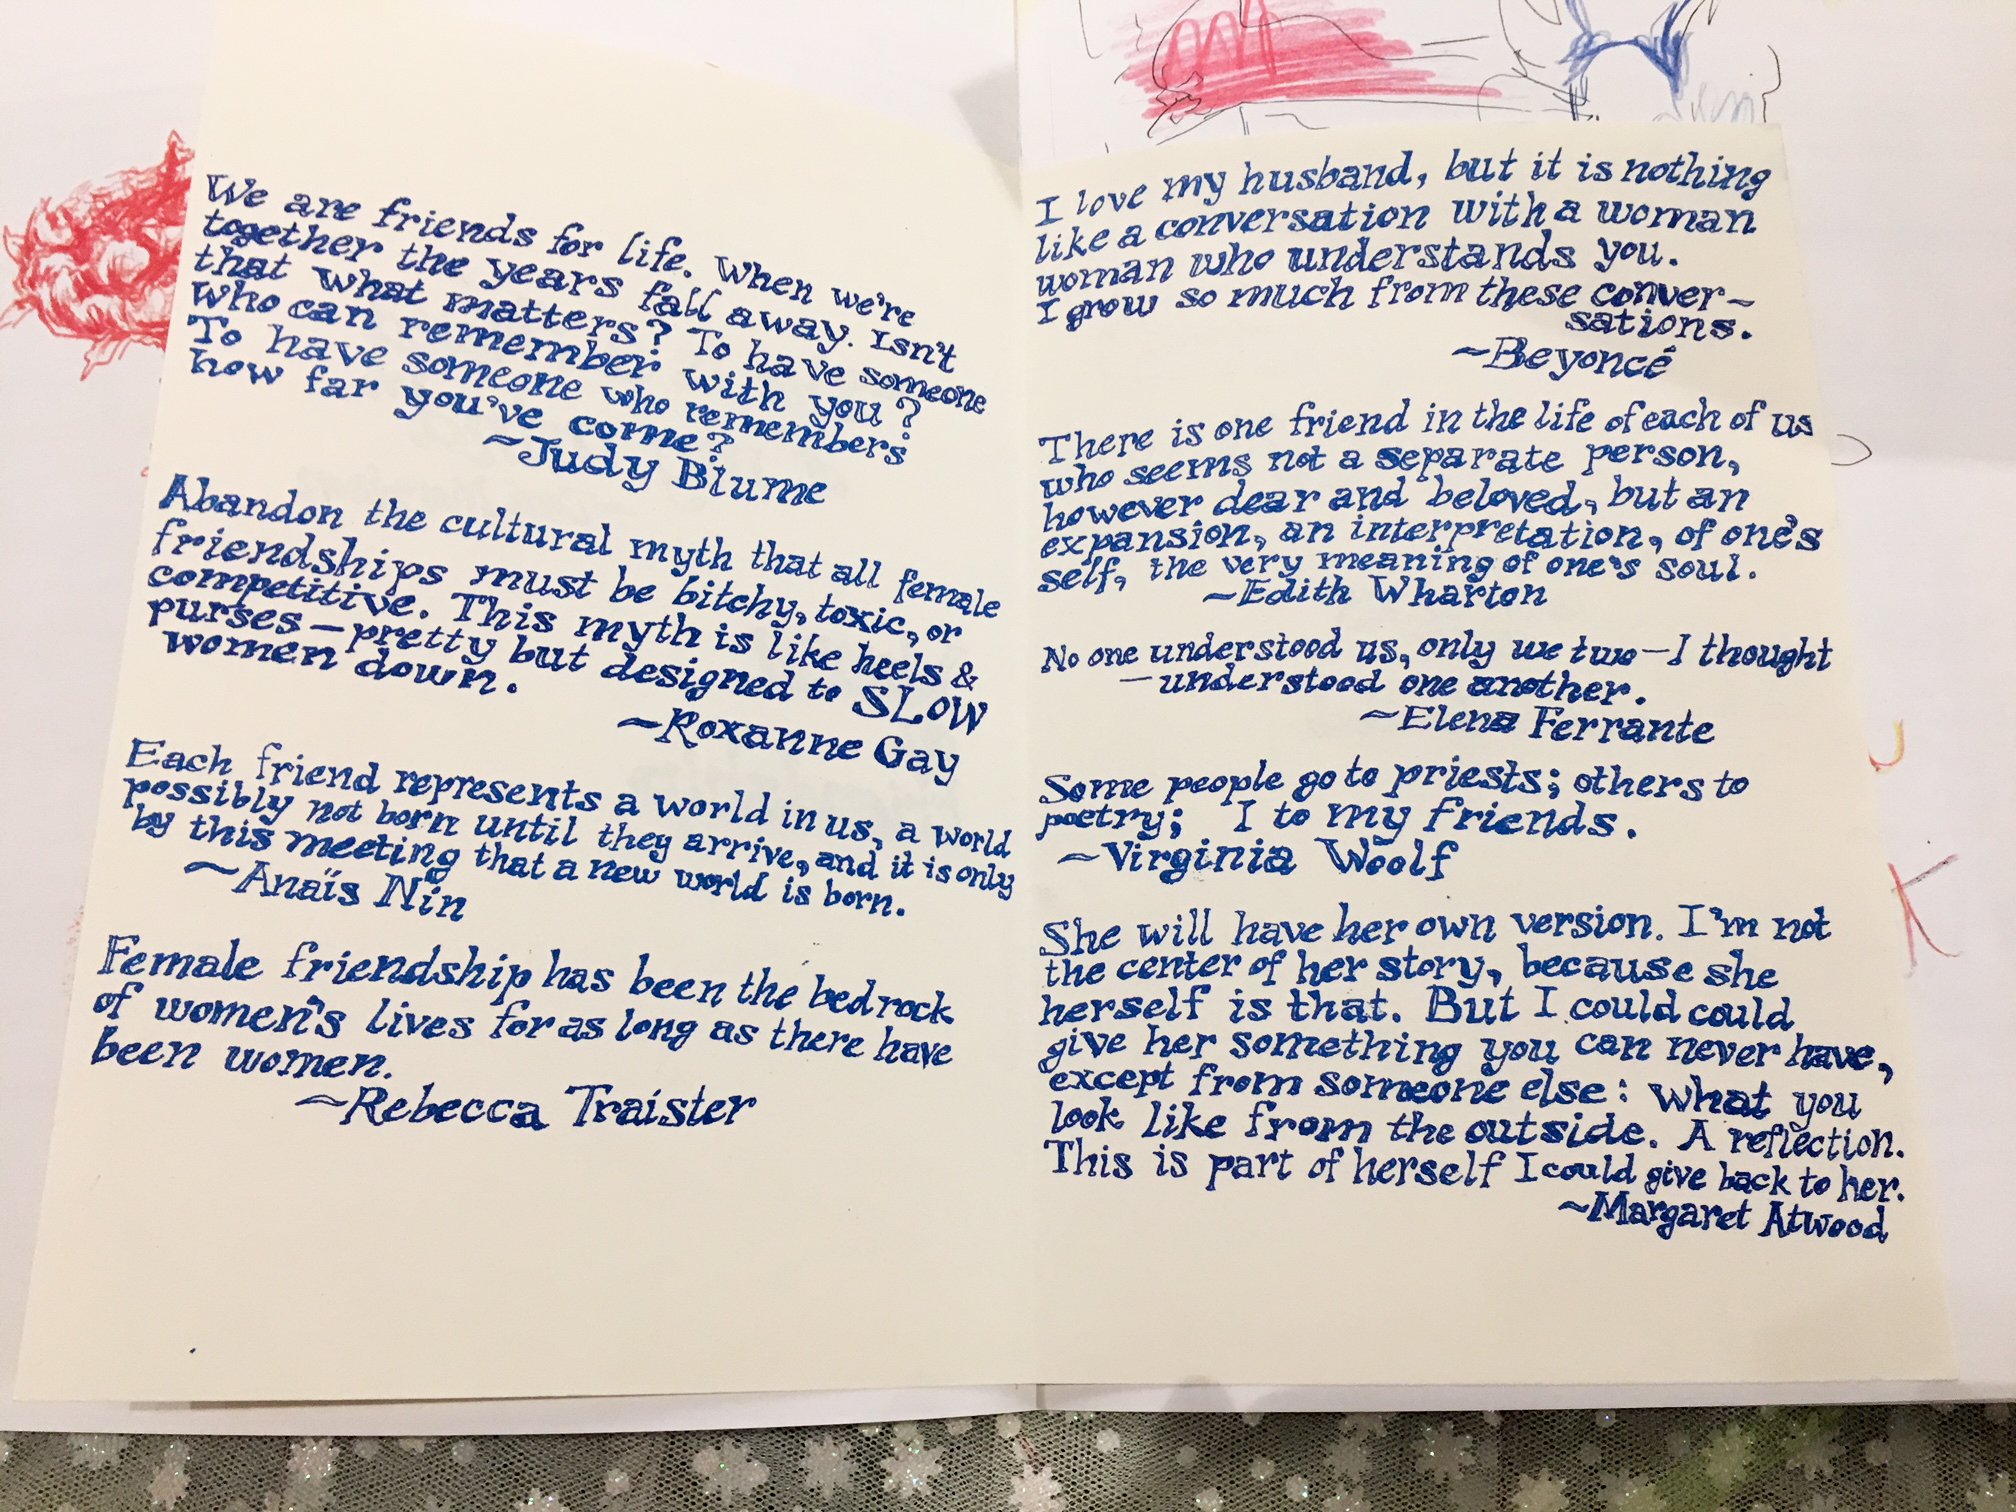 We are friends for life. When we're
together the years fall away. Isn't
that what matters? To have someone
who can remember with you?
To have someone who remembers
how far you've come?
~Judy Blume
Abandon the cultural myth that all female
friendships must be bitchy, toxic, or
competitive. This myth is like heels &
purses—pretty but designed to SLOW
women down.
~Roxanne Gay
Each friend represents a world in us, a world
possibly not born until they arrive, and it is only
by this meeting that a new world is born.
~Anaïs Nin
Female friendship has been the bedrock
of women's lives for as long as there have
been women.
~Rebecca Traister
I love my husband, but it is nothing
like a conversation with a woman
woman who understands you.
I grow so much from these conver-
sations.
~Beyoncé
There is one friend in the life of each of us
who seems not a separate person,
however dear and beloved, but an
expansion, an interpretation, of one's
self, the very meaning of one's soul.
~Edith Wharton
No one understood us, only we two—I thought
—understood one another.
~Elena Ferrante
Some people go to priests; others to
poetry; I to my friends.
~Virginia Woolf
She will have her own version. I'm not
the center of her story, because she
herself is that. But I could could
give her something you can never have,
except from someone else: what you
look like from the outside. A reflection.
This is part of herself I could give back to her.
~Margaret Atwood
J
K